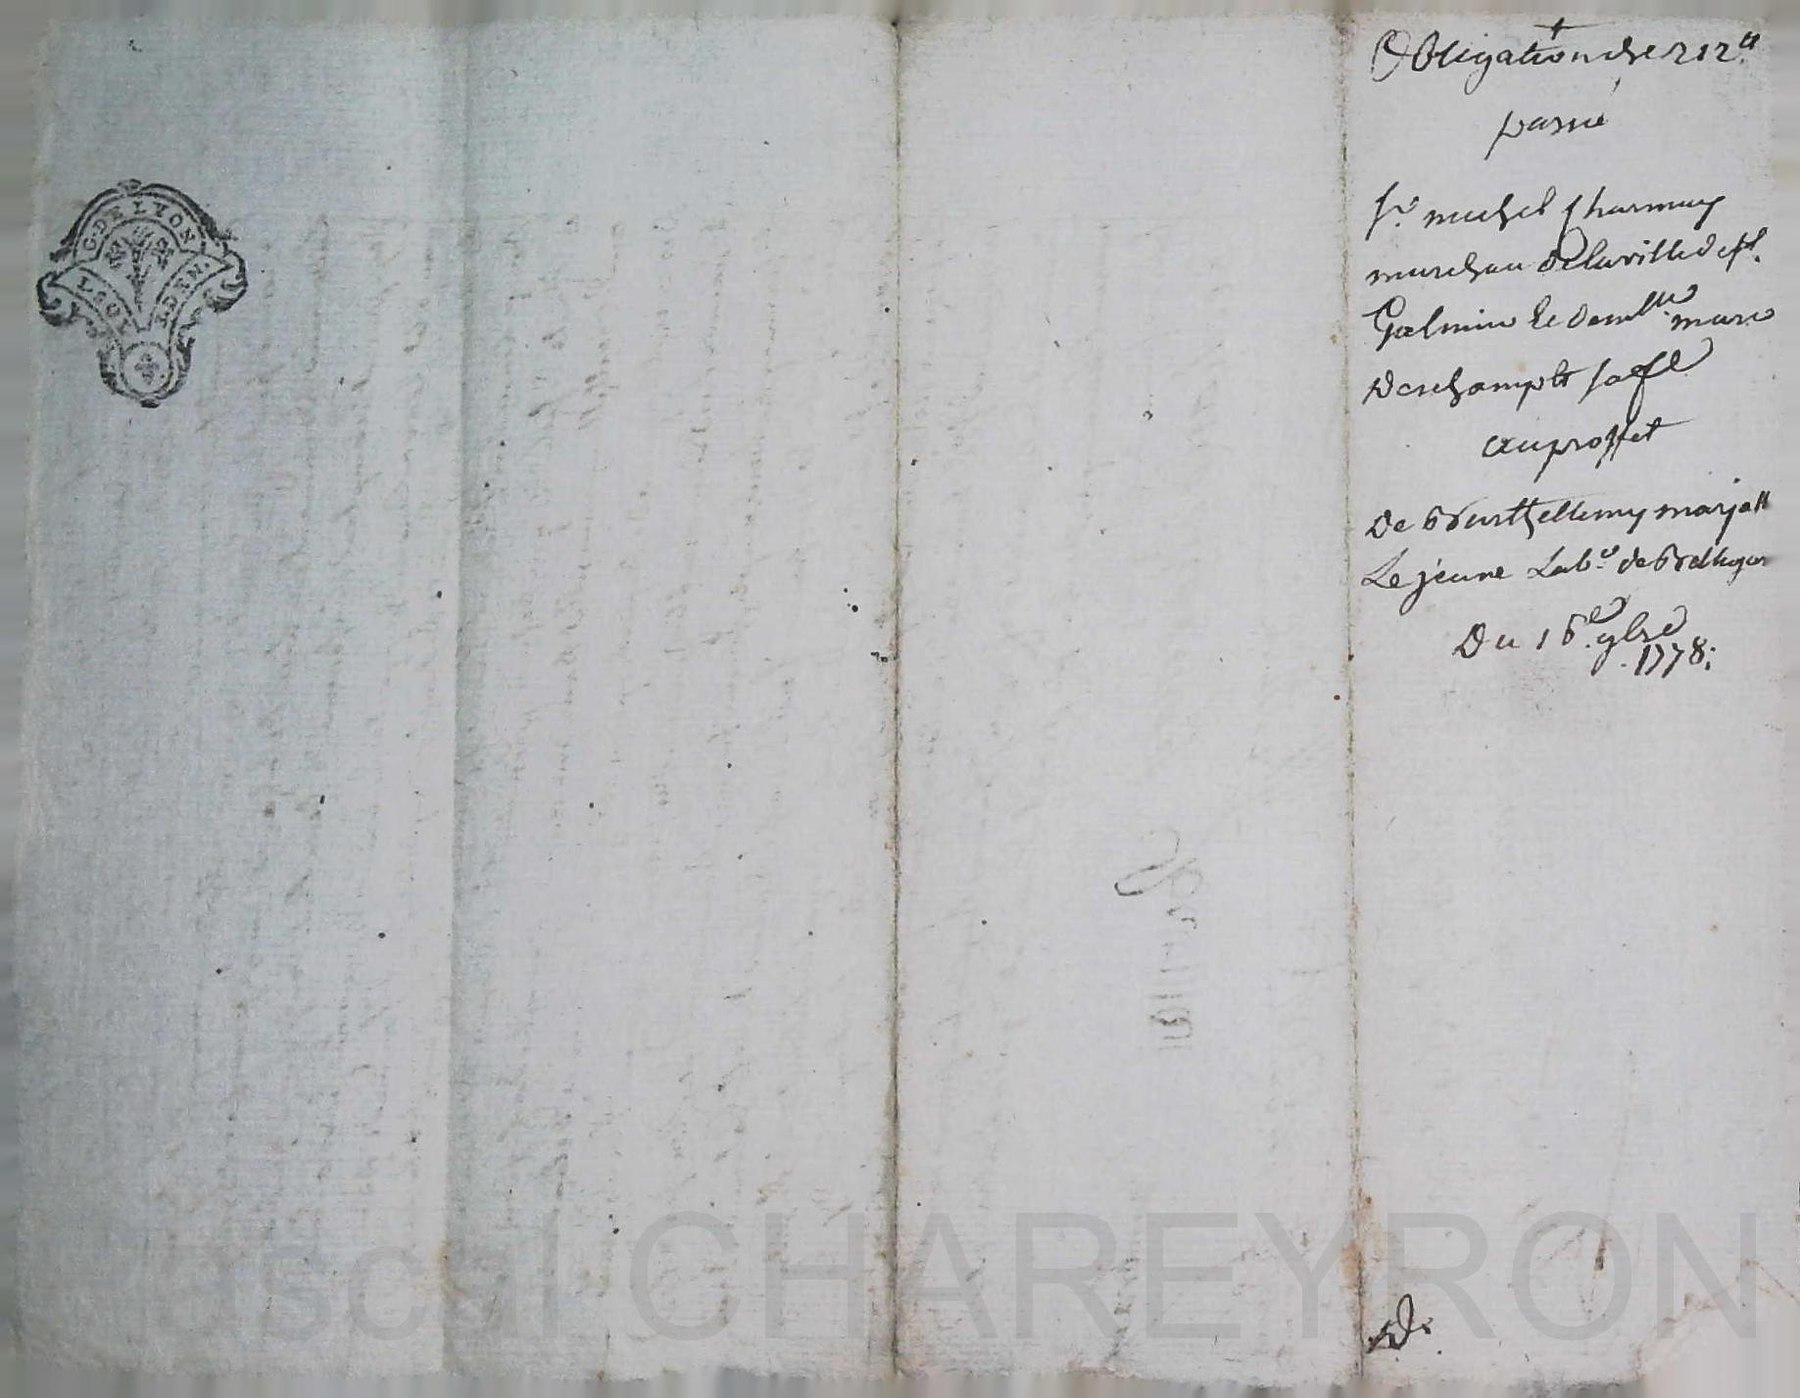 G. DE LYON.
1. SOL 4. DEN.
Obligation de 212ᵗᵗ
passé
Sʳ michel Charmay
marchan de la ville de sᵗ.
Galmier & demˡˡᵉ marie
Deschampts sa fᵉ
au proffet
De Barthellemy marjoll
Le jeune Labʳ. de Bellegar
Du 16ᵉ. 9bre
1778;
Pascal CHAREYRON